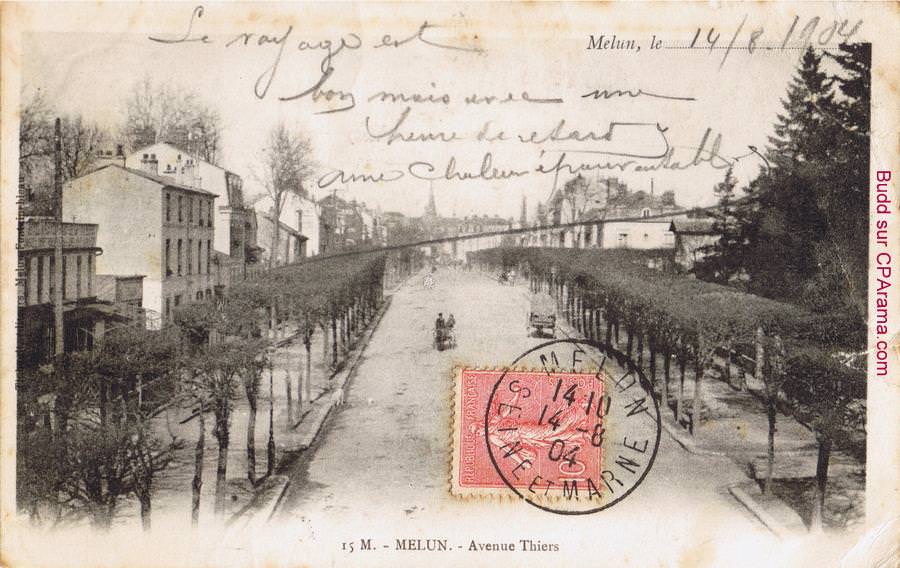 Melun, le 14/8. 1904
Le voyage est
bon mais avec une
heure de retard
une Chaleur épouvantable
Budd sur CPArama.com
REPUBLIQUE FRANÇAISE
MELUN
14 10
14 - 8
04
SEINE ET MARNE
15 M. - MELUN. - Avenue Thiers